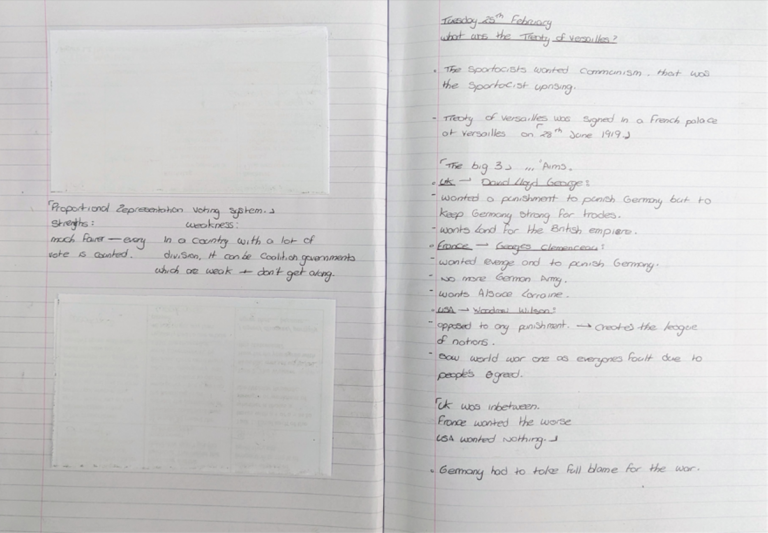 「Proportional Representation Voting System.」
Strengths: weakness:
much fairer — every In a country with a lot of
vote is counted. division, it can be coalition governments
which are weak + don't get along.
Tuesday 25th February
what are the Treaty of versailles?
. The Spartacists wanted Communism. that was
the Spartacist uprising.
- Treaty of versailles was signed in a French palace
at versailles on 「28th June 1919」
「The big 3」 ... 'Aims.
. UK → David Lloyd George:
- wanted a punishment to punish Germany but to
keep Germany strong for trades.
- wants land for the British empiere.
. France → Georges Clemenceau:
- wanted everge and to punish Germany.
- No more German Army.
- wants Alsace Lorraine.
. USA → Woodrow Wilson:
- opposed to any punishment. → Creates the league
of nations.
- Saw world war one as everyones fault due to
people's greed.
「UK was inbetween.
France wanted the worse
USA wanted Nothing.」
. Germany had to take full blame for the war.